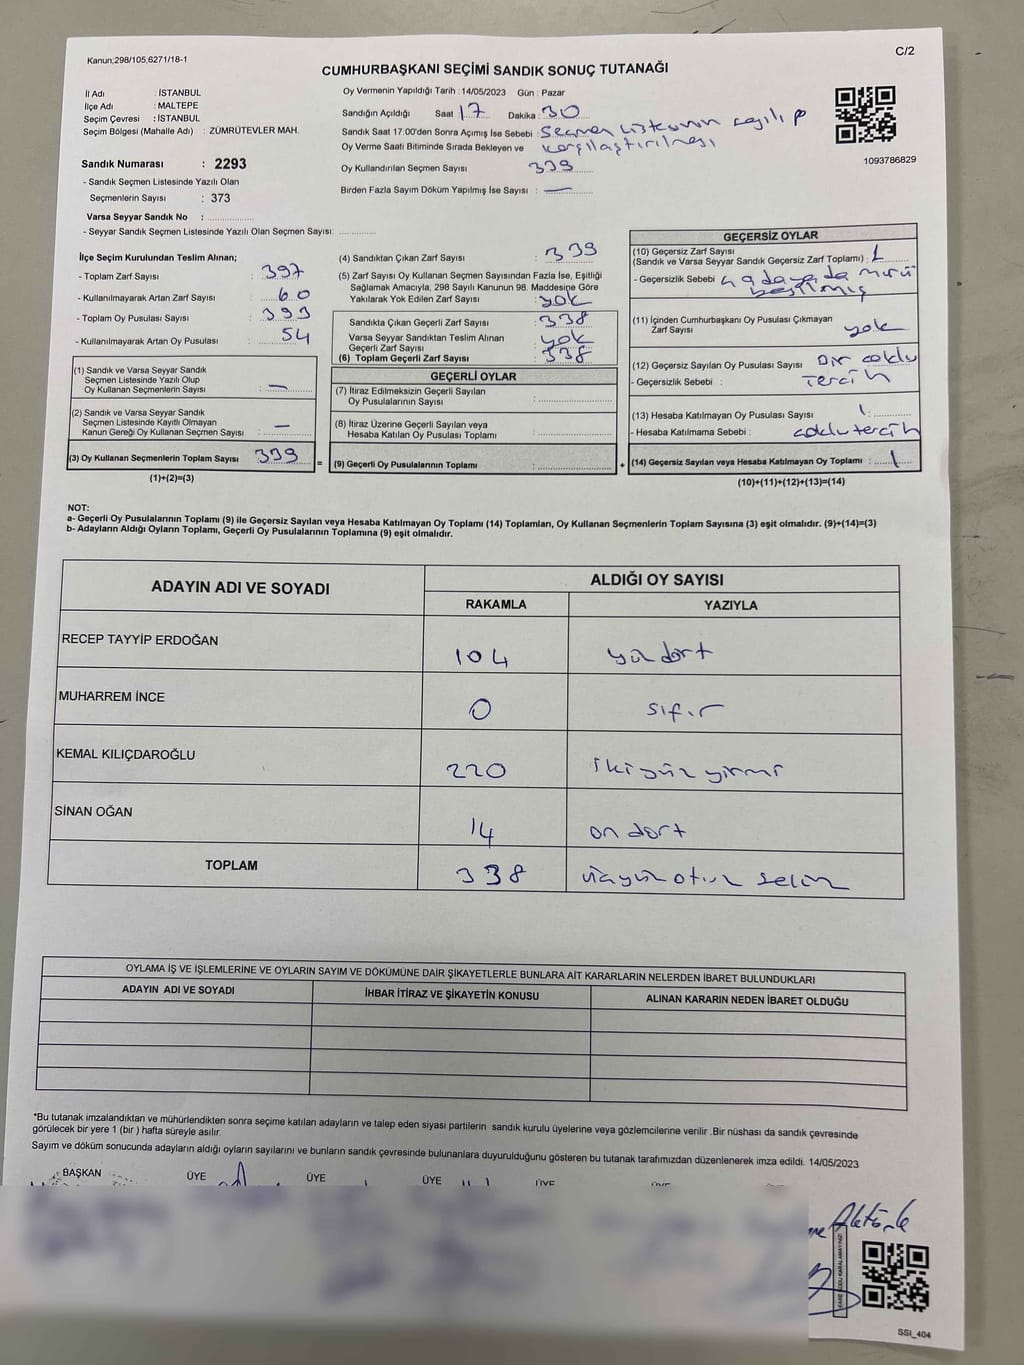 Kanun;298/105,6271/18-1
C/2
CUMHURBAŞKANI SEÇİMİ SANDIK SONUÇ TUTANAĞI
İl Adı : İSTANBUL
İlçe Adı : MALTEPE
Seçim Çevresi : İSTANBUL
Seçim Bölgesi (Mahalle Adı) : ZÜMRÜTEVLER MAH.
Sandık Numarası : 2293
- Sandık Seçmen Listesinde Yazılı Olan
Seçmenlerin Sayısı : 373
Varsa Seyyar Sandık No :
- Seyyar Sandık Seçmen Listesinde Yazılı Olan Seçmen Sayısı:
Oy Vermenin Yapıldığı Tarih : 14/05/2023 Gün : Pazar
Sandığın Açıldığı Saat 17 Dakika : 30
Sandık Saat 17:00'den Sonra Açımış İse Sebebi : Seçmen Listesinin sayılıp
Oy Verme Saati Bitiminde Sırada Bekleyen ve karşılaştırılması
Oy Kullandırılan Seçmen Sayısı 339
Birden Fazla Sayım Döküm Yapılmış İse Sayısı : —
1093786829
İlçe Seçim Kurulundan Teslim Alınan;
- Toplam Zarf Sayısı : 397
- Kullanılmayarak Artan Zarf Sayısı : 60
- Toplam Oy Pusulası Sayısı : 393
- Kullanılmayarak Artan Oy Pusulası : 54
(1) Sandık ve Varsa Seyyar Sandık
Seçmen Listesinde Yazılı Olup
Oy Kullanan Seçmenlerin Sayısı : —
(2) Sandık ve Varsa Seyyar Sandık
Seçmen Listesinde Kayıtlı Olmayan
Kanun Gereği Oy Kullanan Seçmen Sayısı : —
(3) Oy Kullanan Seçmenlerin Toplam Sayısı 339
(1)+(2)=(3)
(4) Sandıktan Çıkan Zarf Sayısı : 339
(5) Zarf Sayısı Oy Kullanan Seçmen Sayısından Fazla İse, Eşitliği
Sağlamak Amacıyla; 298 Sayılı Kanunun 98. Maddesine Göre
Yakılarak Yok Edilen Zarf Sayısı : yok
Sandıkta Çıkan Geçerli Zarf Sayısı : 338
Varsa Seyyar Sandıktan Teslim Alınan
Geçerli Zarf Sayısı : yok
(6) Toplam Geçerli Zarf Sayısı : 338
GEÇERLİ OYLAR
(7) İtiraz Edilmeksizin Geçerli Sayılan
Oy Pusulalarının Sayısı :
(8) İtiraz Üzerine Geçerli Sayılan veya
Hesaba Katılan Oy Pusulası Toplamı :
= (9) Geçerli Oy Pusulalarının Toplamı : +
GEÇERSİZ OYLAR
(10) Geçersiz Zarf Sayısı
(Sandık ve Varsa Seyyar Sandık Geçersiz Zarf Toplamı) : 1
- Geçersizlik Sebebi : 4 adaya da mührü
basılmış
(11) İçinden Cumhurbaşkanı Oy Pusulası Çıkmayan
Zarf Sayısı yok
(12) Geçersiz Sayılan Oy Pusulası Sayısı : Bir çoklu
- Geçersizlik Sebebi : Tercih
(13) Hesaba Katılmayan Oy Pusulası Sayısı 1
- Hesaba Katılmama Sebebi : çoklu tercih
(14) Geçersiz Sayılan veya Hesaba Katılmayan Oy Toplamı : 1
(10)+(11)+(12)+(13)=(14)
NOT:
a- Geçerli Oy Pusulalarının Toplamı (9) ile Geçersiz Sayılan veya Hesaba Katılmayan Oy Toplamı (14) Toplamları, Oy Kullanan Seçmenlerin Toplam Sayısına (3) eşit olmalıdır. (9)+(14)=(3)
b- Adayların Aldığı Oyların Toplamı, Geçerli Oy Pusulalarının Toplamına (9) eşit olmalıdır.
ADAYIN ADI VE SOYADI ALDIĞI OY SAYISI
RAKAMLA YAZIYLA
RECEP TAYYİP ERDOĞAN 104 yüz dört
MUHARREM İNCE 0 sıfır
KEMAL KILIÇDAROĞLU 220 ikiyüz yirmi
SİNAN OĞAN 14 on dört
TOPLAM 338 üçyüz otuz sekiz
OYLAMA İŞ VE İŞLEMLERİNE VE OYLARIN SAYIM VE DÖKÜMÜNE DAİR ŞİKAYETLERLE BUNLARA AİT KARARLARIN NELERDEN İBARET BULUNDUKLARI
ADAYIN ADI VE SOYADI İHBAR İTİRAZ VE ŞİKAYETİN KONUSU ALINAN KARARIN NEDEN İBARET OLDUĞU
*Bu tutanak imzalandıktan ve mühürlendikten sonra seçime katılan adayların ve talep eden siyasi partilerin sandık kurulu üyelerine veya gözlemcilerine verilir .Bir nüshası da sandık çevresinde
görülecek bir yere 1 (bir ) hafta süreyle asılır.
Sayım ve döküm sonucunda adayların aldığı oyların sayılarını ve bunların sandık çevresinde bulunanlara duyurulduğunu gösteren bu tutanak tarafımızdan düzenlenerek imza edildi. 14/05/2023
BAŞKAN ÜYE ÜYE ÜYE ÜYE
SSI_404